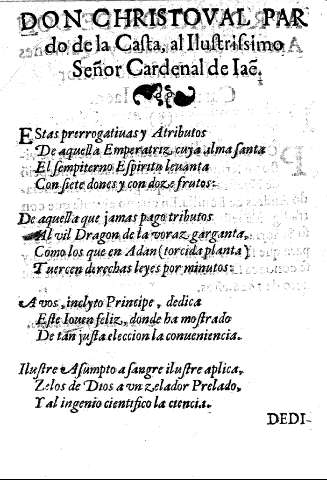 DON CHRISTOVAL PAR
do de la Casta, al Ilustrissimo
Señor Cardenal de Iaẽ.
Estas prerrogatiuas y Atributos
De aquella Emperatriz, cuya alma santa
El sempiterno Espiritu leuanta
Con siete dones y con doze frutos:
De aquella que jamas pago tributos
Al vil Dragon de la voraz garganta,
Como los que en Adan (torcida planta)
Tuercen derechas leyes por minutos:
A vos, inclyto Principe, dedica
Este Iouen feliz, donde ha mostrado
De tan justa eleccion la conueniencia.
Ilustre Asumpto a sangre ilustre aplica,
Zelos de Dios a vn zelador Prelado,
Y al ingenio cientifico la ciencia.
DEDI-